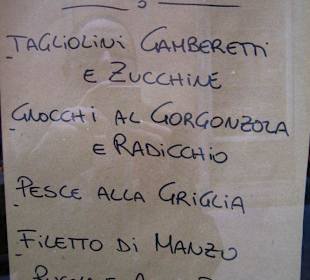 - TAGLIOLINI GAMBERETTI
E ZUCCHINE
- GNOCCHI AL GORGONZOLA
E RADICCHIO
- PESCE ALLA GRIGLIA
- FILETTO DI MANZO